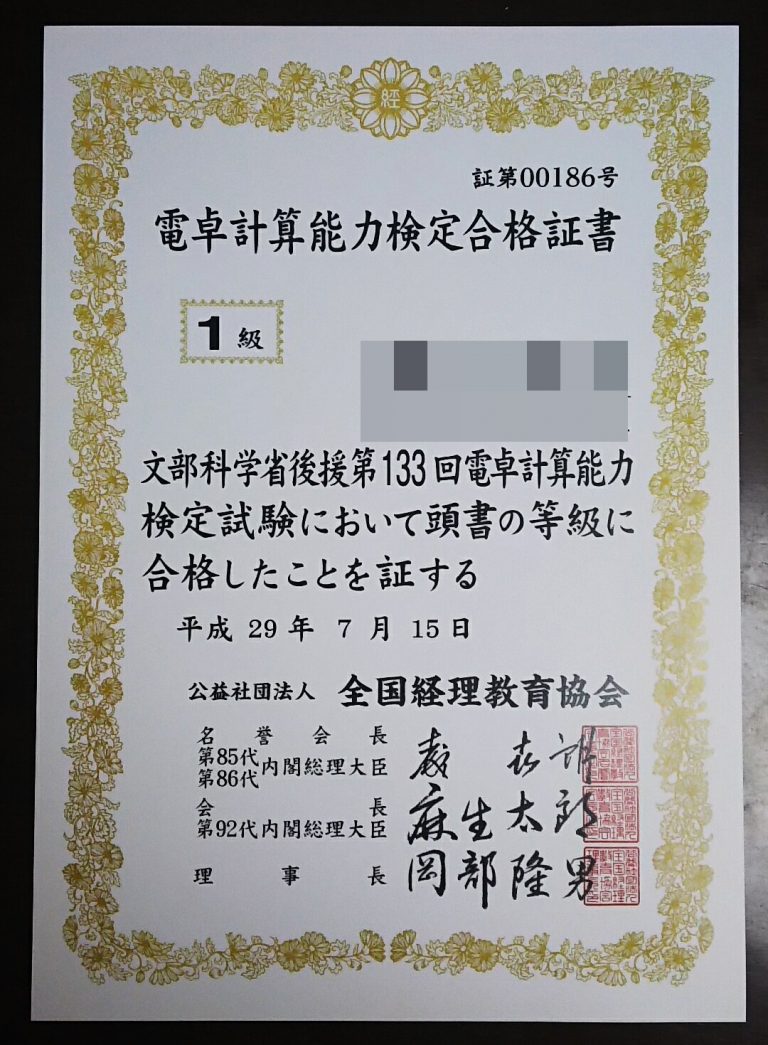 経
証第00186号
電卓計算能力検定合格証書
1級
文部科学省後援第133回電卓計算能力
検定試験において頭書の等級に
合格したことを証する
平成 29 年 7 月 15 日
公益社団法人 全国経理教育協会
名誉会長
第85代
第86代 内閣総理大臣 森 喜朗
会長
第92代 内閣総理大臣 麻生太郎
理事長 岡部隆男